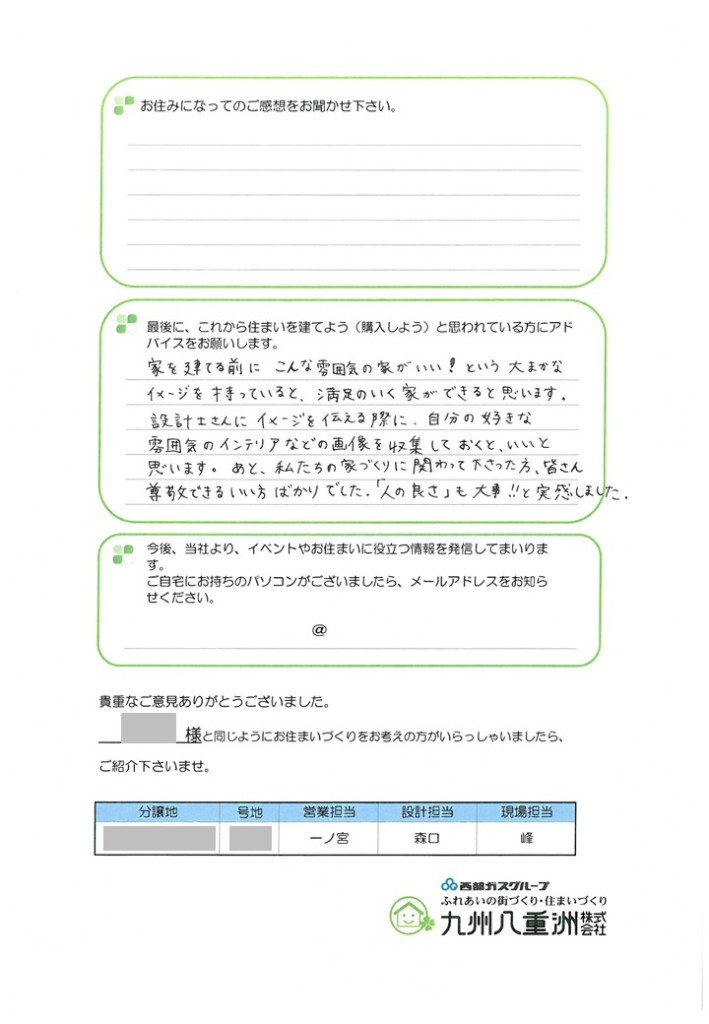 お住みになってのご感想をお聞かせ下さい。
最後に、これから住まいを建てよう（購入しよう）と思われている方にアド
バイスをお願いします。
家を建てる前に こんな雰囲気の家がいい！という 大まかな
イメージを持っていると、満足のいく家ができると思います。
設計士さんに イメージを伝える際に、自分の好きな
雰囲気のインテリアなどの画像を収集しておくと、いいと
思います。あと、私たちの家づくりに関わって下さった方、皆さん
尊敬できるいい方ばかりでした。「人の良さ」も大事!!と実感しました。
今後、当社より、イベントやお住まいに役立つ情報を発信してまいりま
す。
ご自宅にお持ちのパソコンがございましたら、メールアドレスをお知ら
せください。
@
貴重なご意見ありがとうございました。
様と同じようにお住まいづくりをお考えの方がいらっしゃいましたら、
ご紹介下さいませ。
分譲地 号地 営業担当 設計担当 現場担当
一ノ宮 森口 峰
西部ガスグループ
ふれあいの街づくり・住まいづくり
九州八重洲株式会社